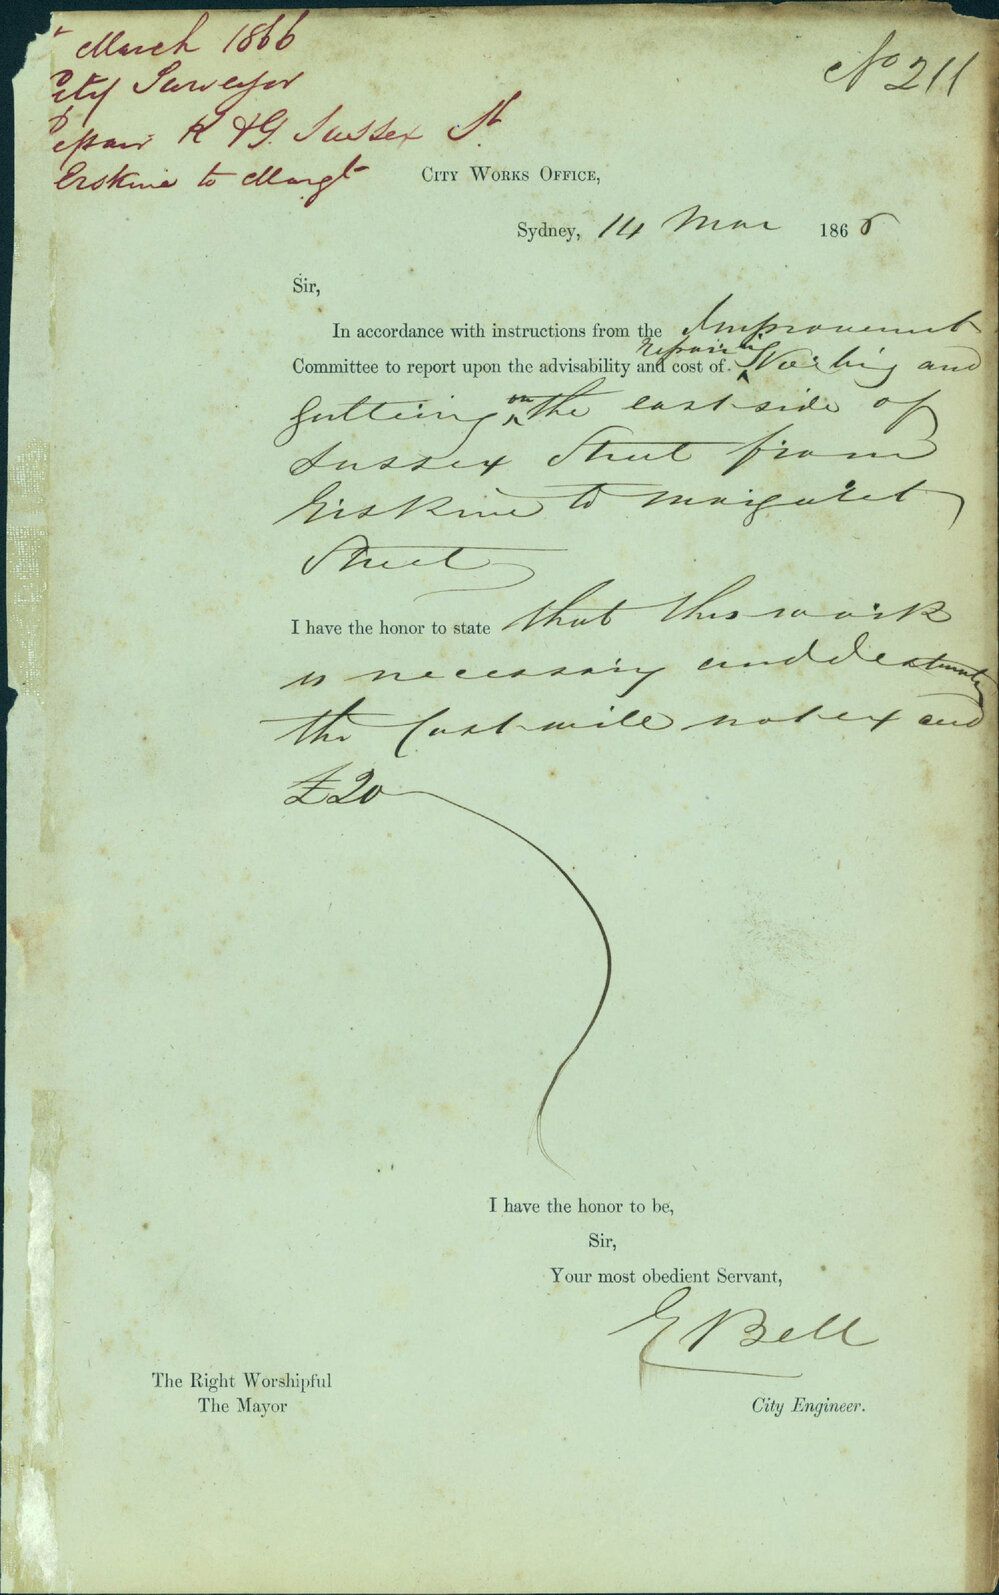 March 1866
City Surveyor
Repair K & G. Sussex St.
Erskine to Margt
No 211
City Works Office,
Sydney, 14 Mar 1866
Sir,
In accordance with instructions from the Improvement
Committee to report upon the advisability and cost of. repairing Kerbing and
guttering on the east side of
Sussex Street from
Erskine to Margaret
Street
I have the honor to state that this work
is necessary and estimate
the Cost will not ex
£20
I have the honor to be,
Sir,
Your most obedient Servant,
E Bell
The Right Worshipful
The Mayor
City Engineer.